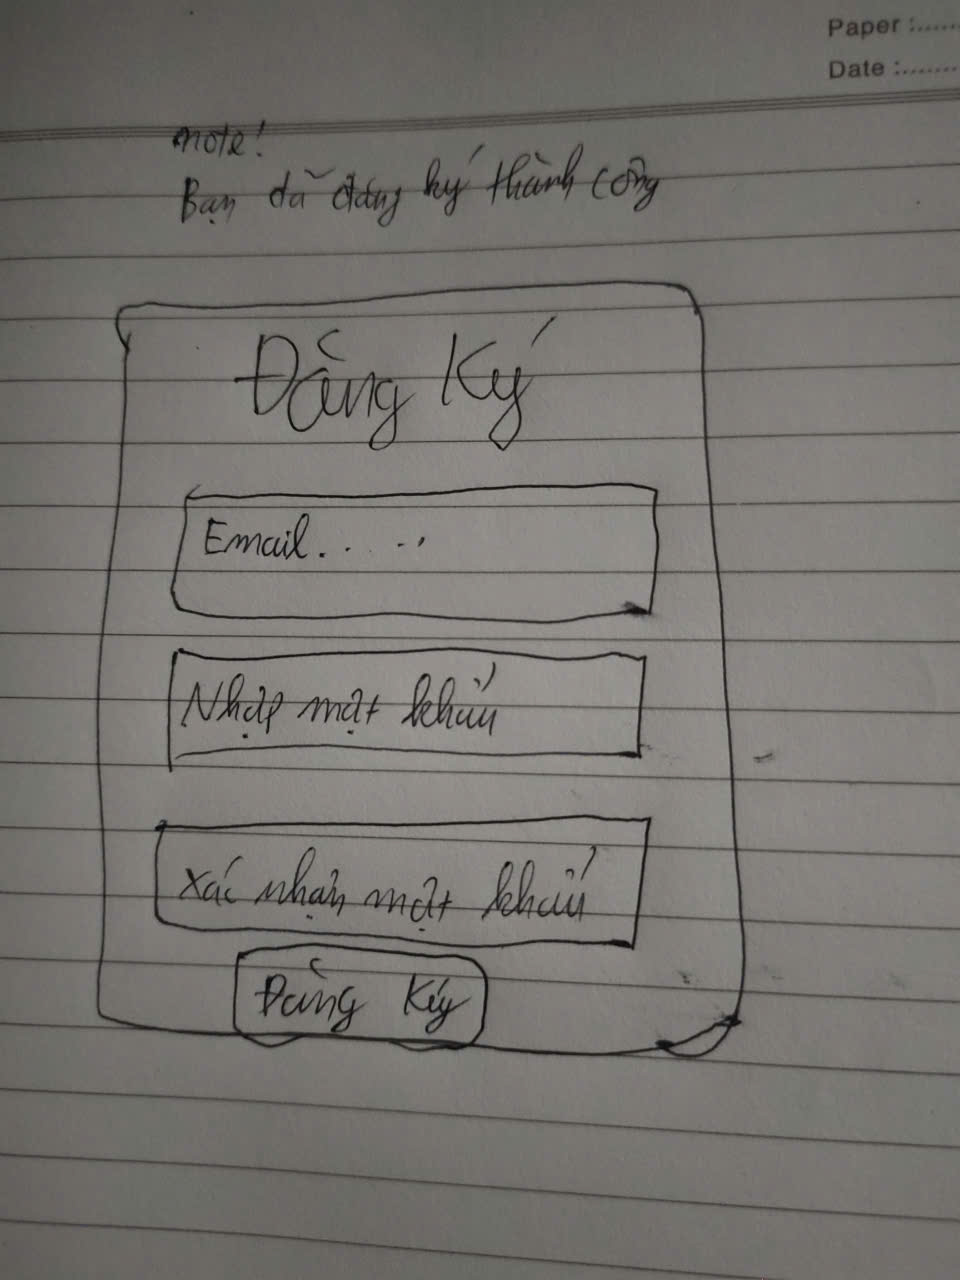 Paper :......
Date :........
note!
Bạn đã đăng ký thành công
Đăng Ký
Email. . . . .
Nhập mật khẩu
Xác nhận mật khẩu
Đăng Ký